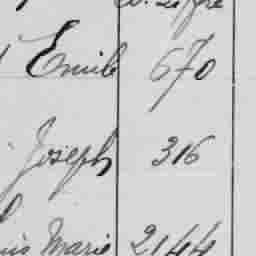 Emile 670
Joseph 316
Marie 2144